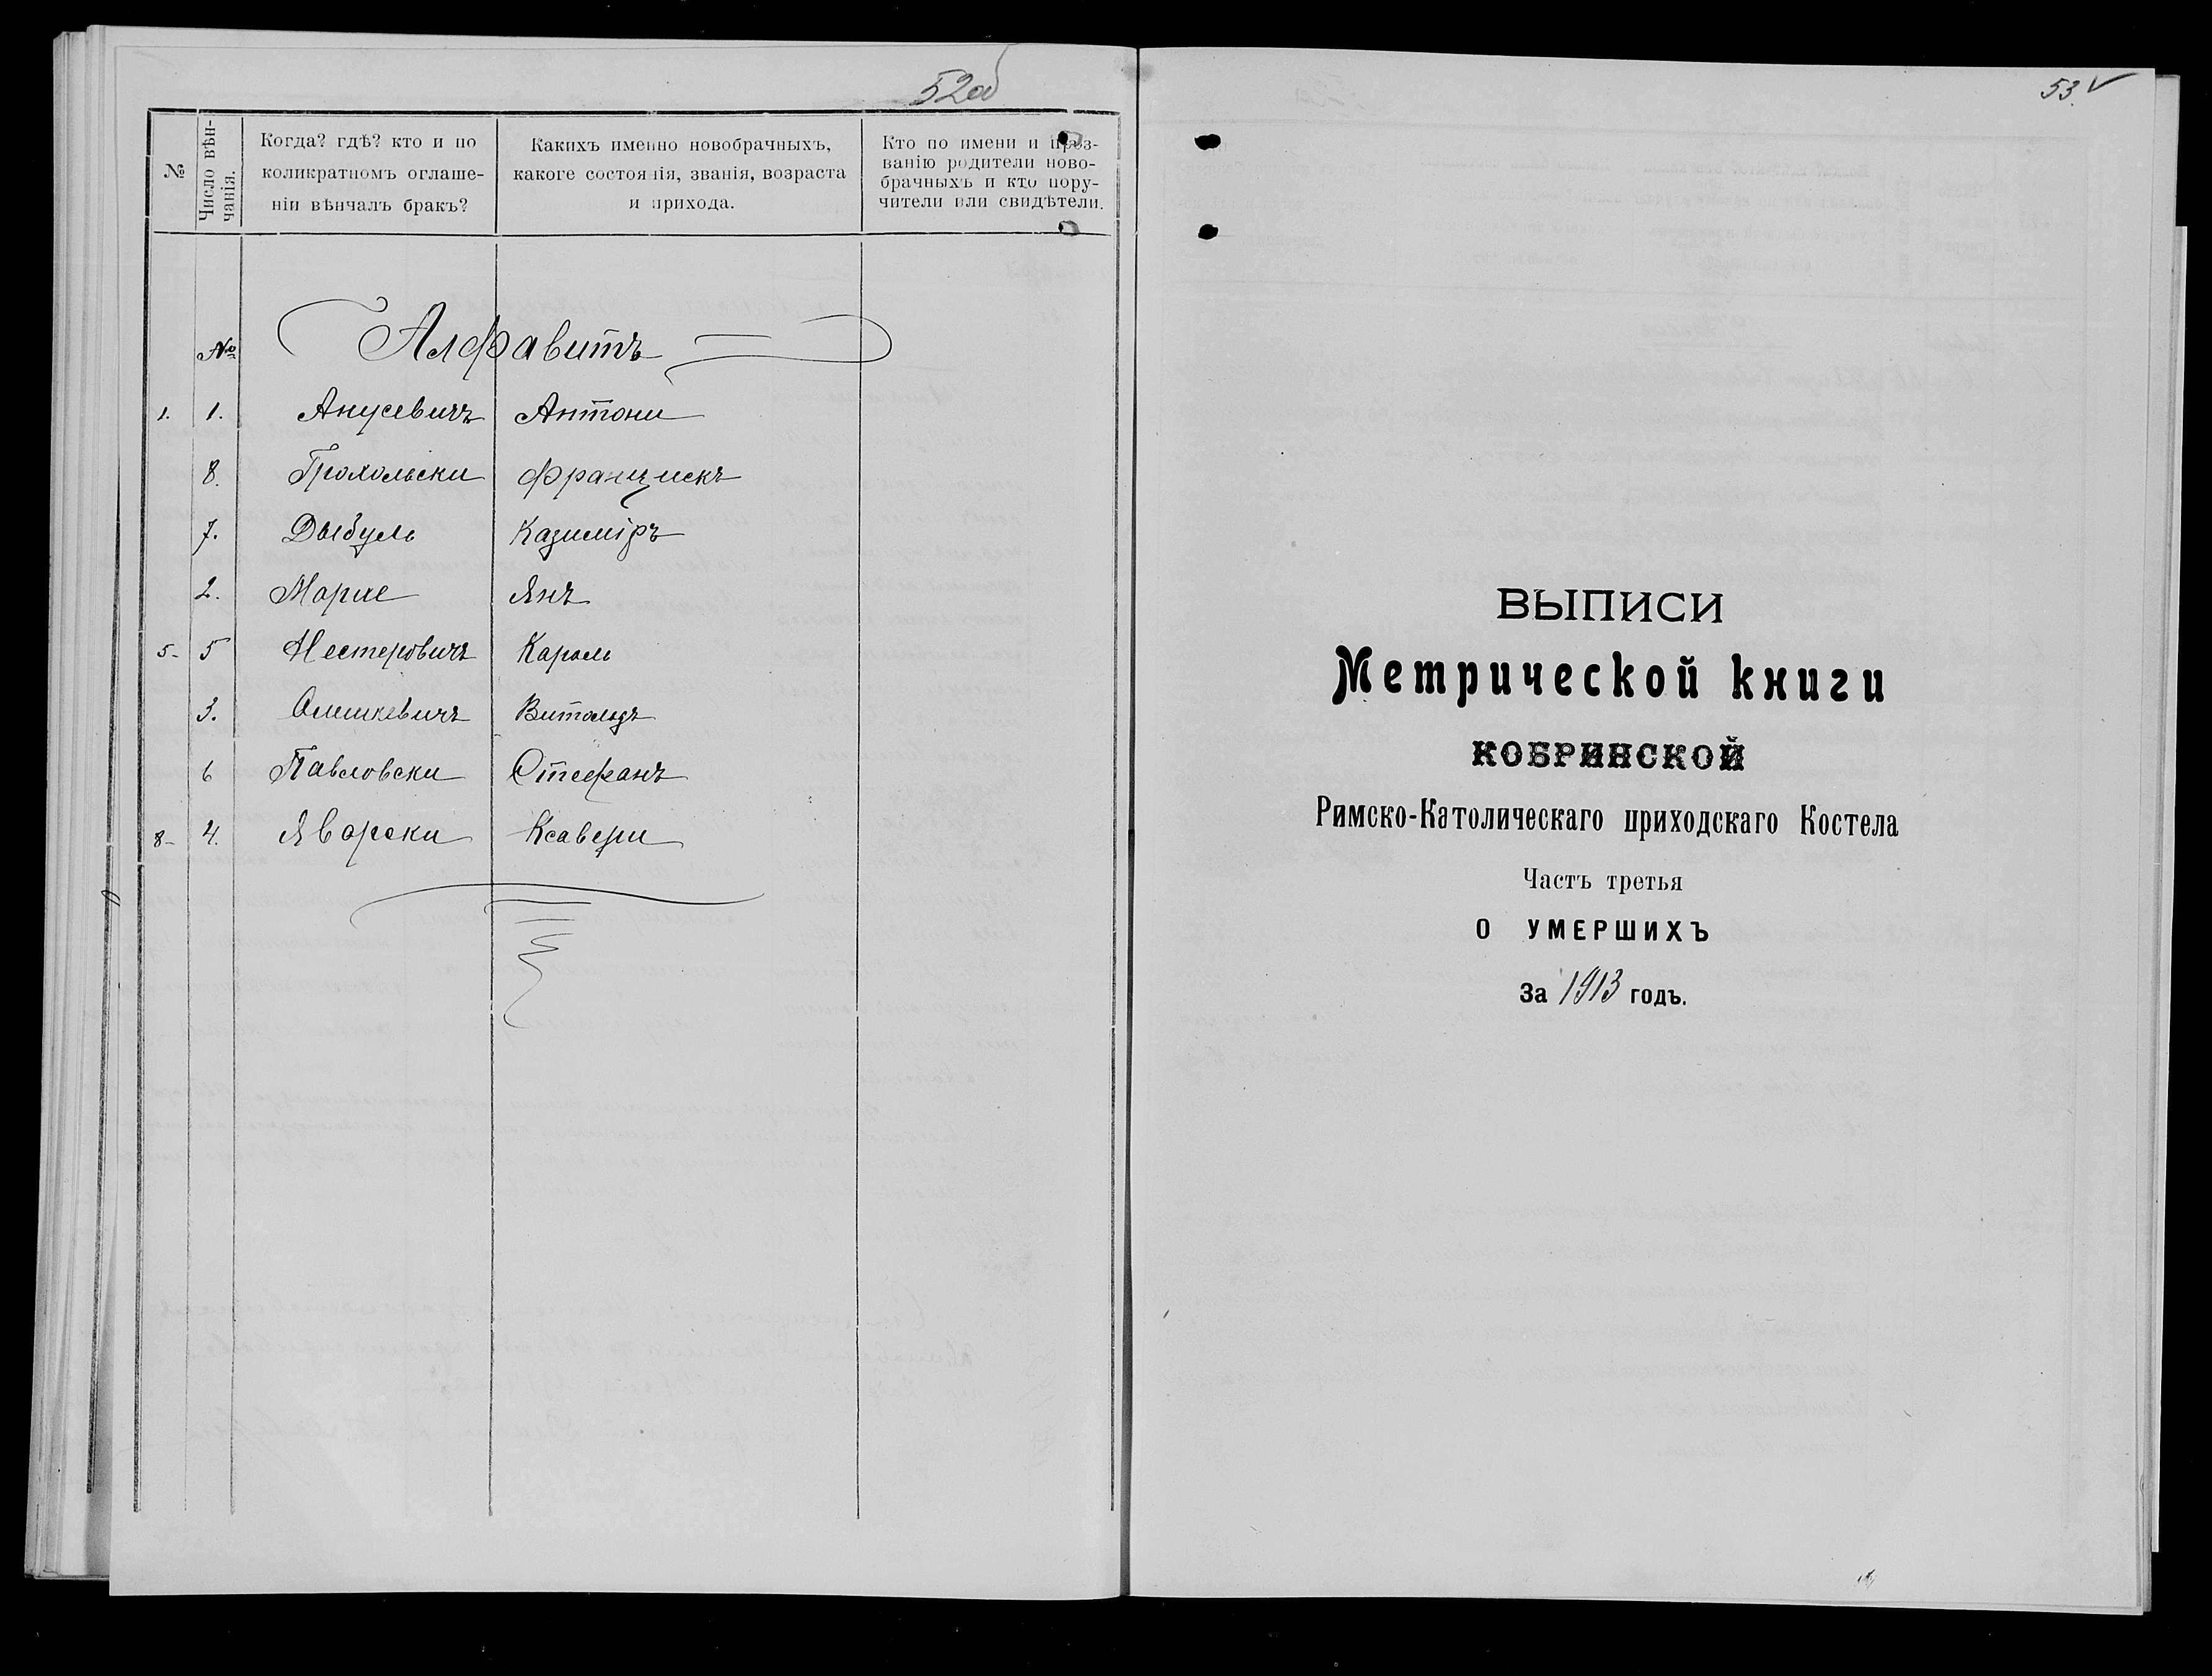 52об
№
Число вѣн-
чанія.
Когда? гдѣ? кто и по
коликратномъ оглаше-
ніи вѣнчалъ бракъ?
Какихъ именно новобрачныхъ,
какоге состоянія, званія, возраста
и прихода.
Кто по имени и проз-
ванію родители ново-
брачныхъ и кто пору-
чители или свидѣтели.
№ Алфавитъ
1. 1. Анусевичъ Антони
8. Грохольски Францискъ
7. Дыбуль Казиміръ
2. Марце Янъ
5- 5 Нестеровичъ Кароль
3. Олешкевичъ Витольдъ
6 Павловски Стефанъ
8- 4. Яворски Ксавери
53.
ВЫПИСИ
Метрической книги
КОБРИНСКОЙ
Римско-Католическаго приходскаго Костела
Часть третья
О УМЕРШИХЪ
За 1913 годъ.